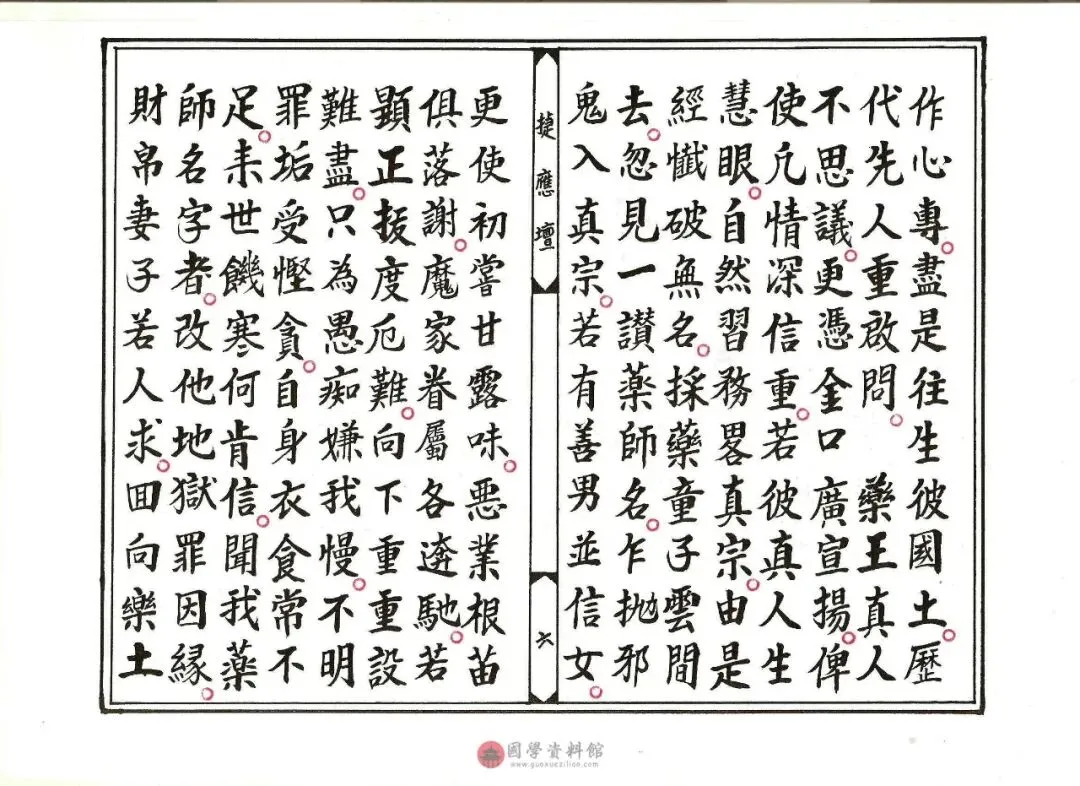 作心專盡是往生彼國土歷
代先人重啟問　藥王真人
不思議更憑金口廣宣揚俾
使凢情深信重若彼真人生
慧眼自然習務畧真宗由是
經懺破無名採藥童子雲間
去忽見一讃藥師名乍拋邪
鬼入真宗若有善男並信女
捷應壇
六
更使初嘗甘露味惡業根苗
俱落謝魔家眷屬各逩馳若
顕正拔度厄難向下重重設
難盡只為愚痴嫌我慢不明
罪垢受慳貪自身衣食常不
足来世饑寒何肯信聞我藥
師名字者改他地獄罪因緣
財帛妻子若人求回向樂土
國學資料館
www.guoxueziliao.com